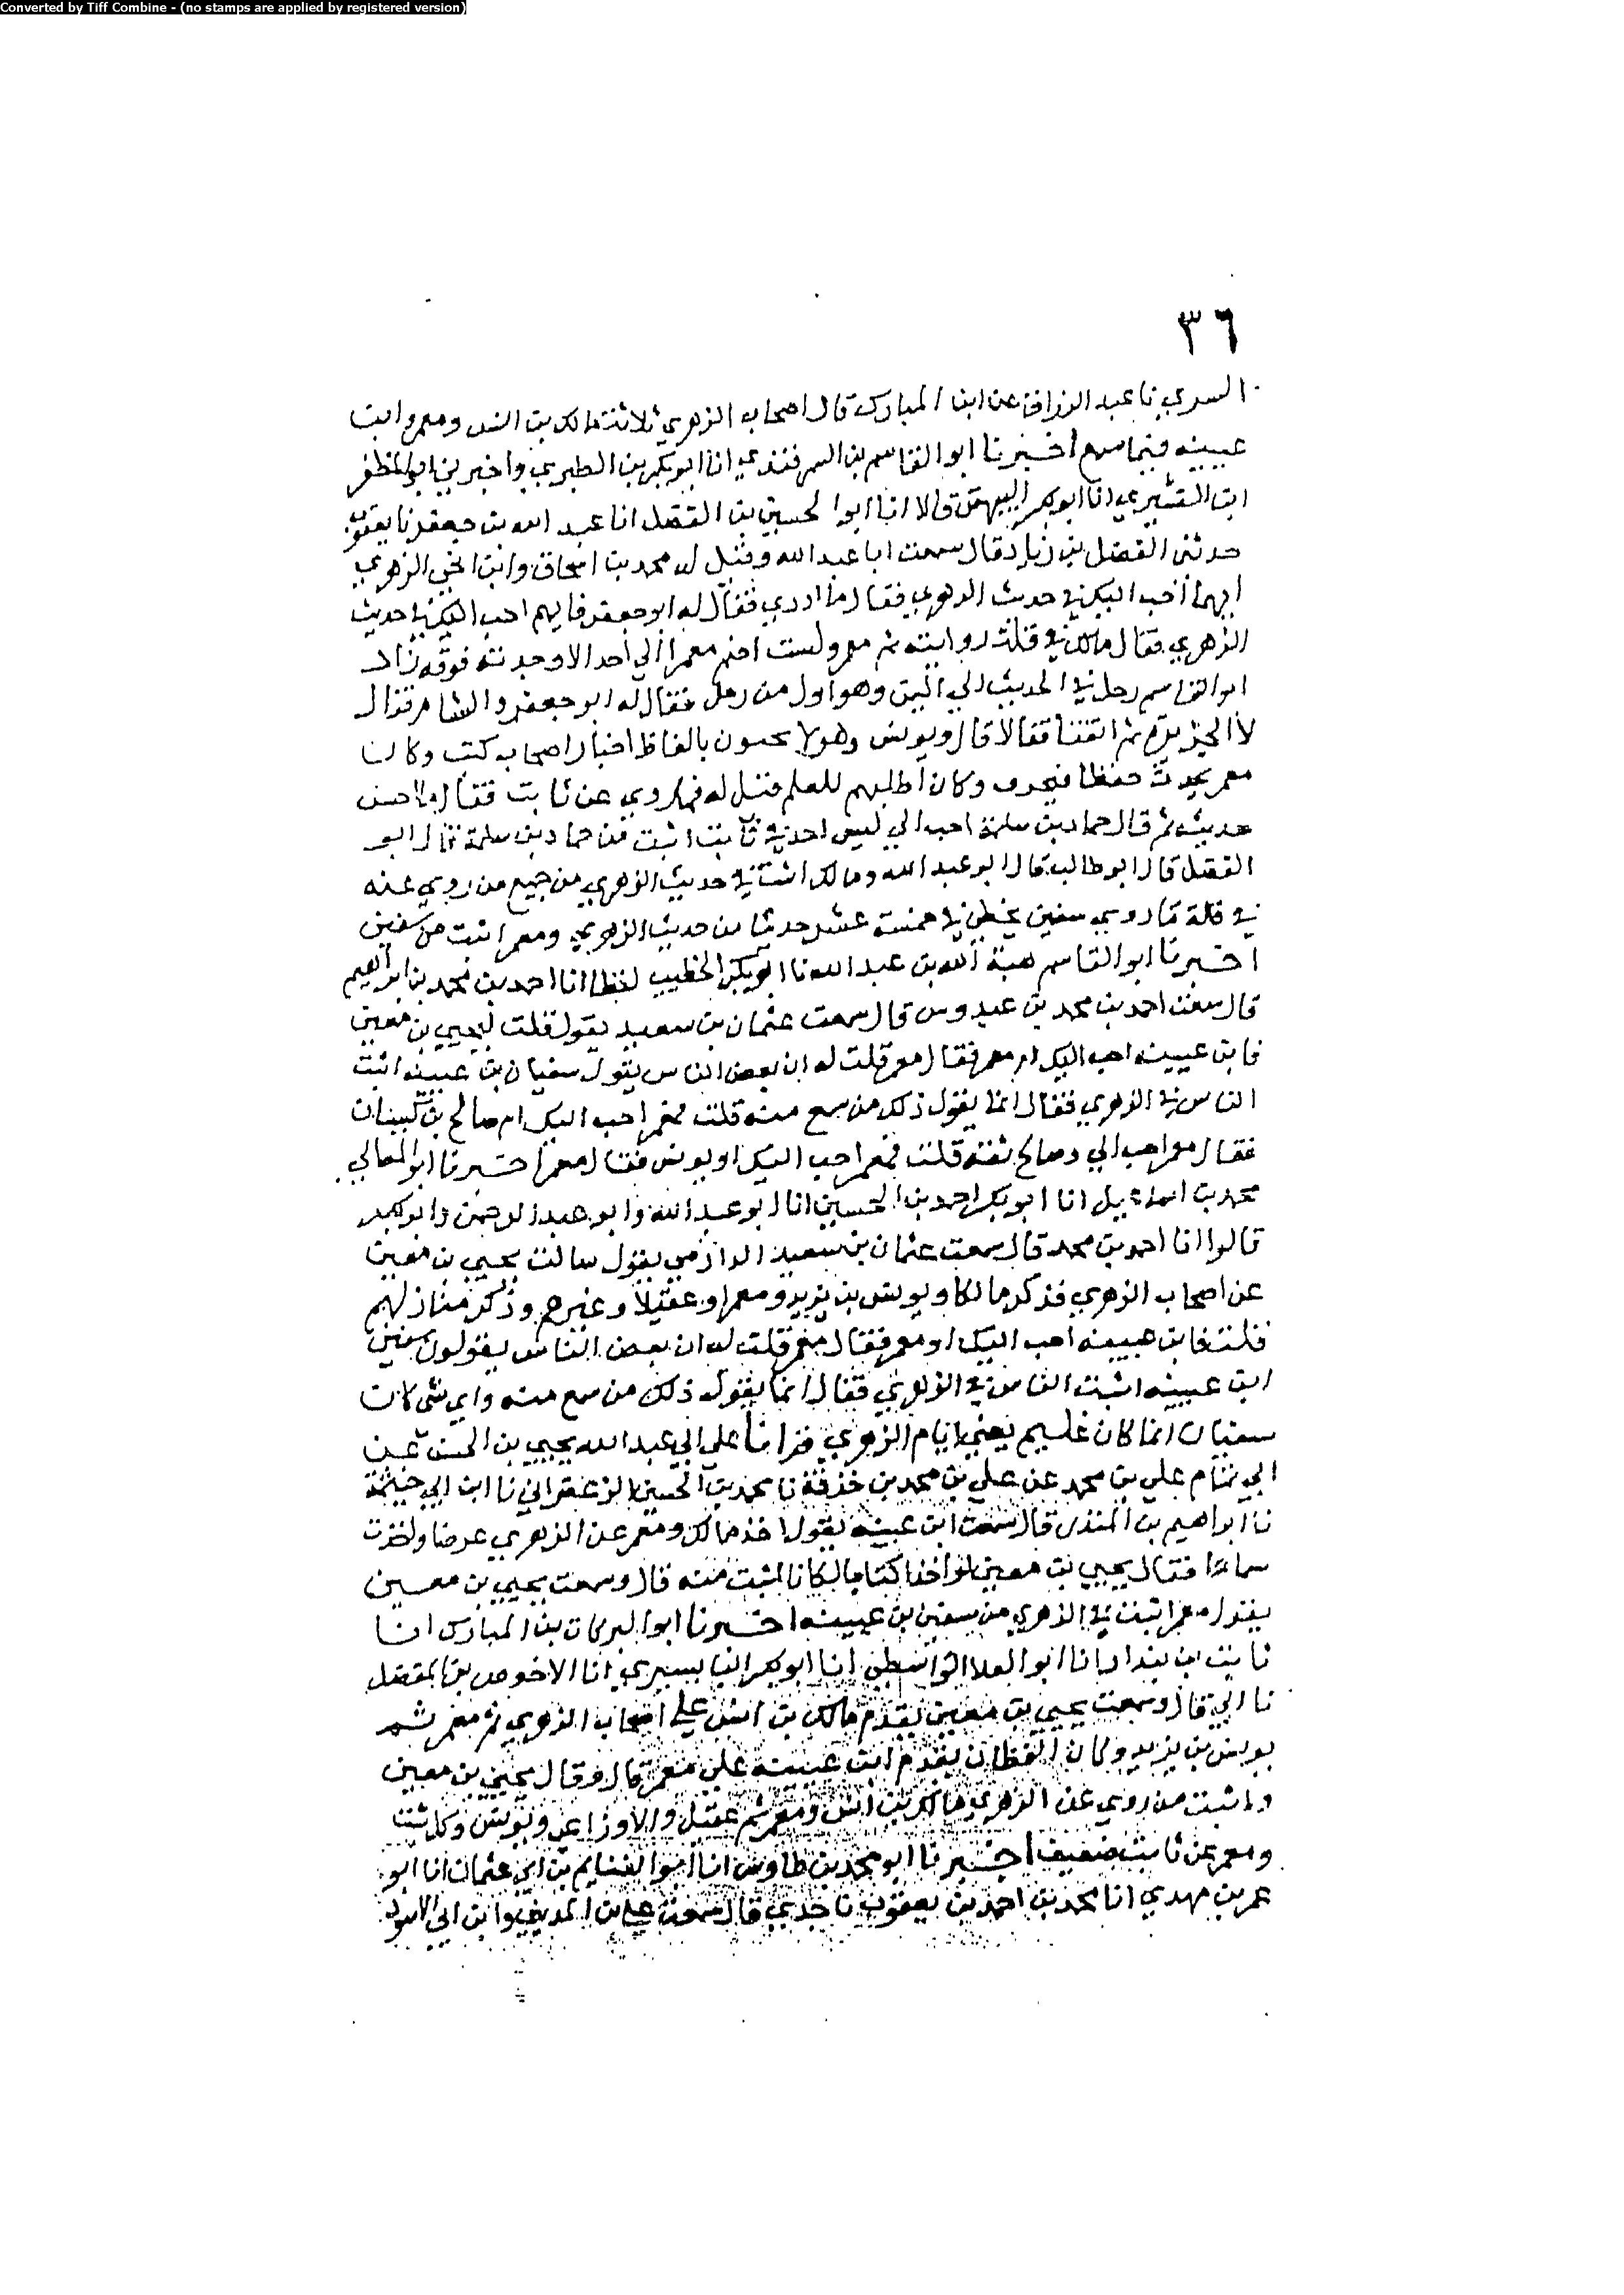 Converted by Tiff Combine - (no stamps are applied by registered version)
٣٦
السري نا عبد الرزاق عن ابن المبارك قال اصحاب الزهري ثلاثة مالك بن انس ومعمر وابن
عيينه فيما سمع اخبرنا ابو القاسم بن السمرقندي انا ابو بكر بن الطبري واخبرنا ابو المظفر
ابن القشيري انا ابو بكر البيهقي قالا انا ابو الحسين بن الفضل انا عبد الله بن جعفر نا يعقوب
حدثني الفضل بن زياد قال سمعت ابا عبد الله وقيل له محمد بن اسحاق وابن اخي الزهري
ايهما أحب اليك في حديث الزهري فقال ما ادري فقال له ابو جعفر فايهم احب اليك في حديث
الزهري فقال مالك في قلة روايته ثم معمر ولست اضم معمرا الي أحد الا وجدته فوقه زاد
ابو القاسم رحل في الحديث الي اليمن وهو اول من رحل فقال له ابو جعفر والشام فقال
لا الجزيرة ثم اتفقنا فقالا قال ويونس وهولا يجيبون بالفاظ اخبار اصحاب كتب وكان
معمر يحدث حفظا فيحرف وكان أطلبهم للعلم فقيل له فما روي عن ثابت فقال ما احسن
حديثه ثم قال حماد بن سلمة احب الي ليس احد في ثابت اثبت من حماد بن سلمة قال ابو
الفضل قال ابو طالب قال ابو عبد الله ومالك اثبت في حديث الزهري من جميع من روي عنه
في قلة ما روي سفين يخطئ في خمسة عشر حديثا من حديث الزهري ومعمر اثبت من سفين
اخبرنا ابو القاسم هبة الله بن عبد الله نا ابو بكر الخطيب لفظا انا احمد بن محمد بن ابراهيم
قال سمعت احمد بن محمد بن عبدوس قال سمعت عثمان بن سعيد يقول قلت ليحيي بن معين
فابن عيينه احب اليك ام معمر فقال معمر قلت له ان بعض الناس يقول سفيان بن عيينه اثبت
الناس في الزهري فقال انما يقول ذلك من سمع منه قلت فمعمر احب اليك ام صالح بن كيسان
فقال معمر احب الي وصالح ثقه قلت فمعمر احب اليك او يونس فقال معمر اخبرنا ابو المعالي
محمد بن اسماعيل انا ابو بكر احمد بن الحسين انا ابو عبد الله وابو عبد الرحمن وابو بكر
قالوا انا احمد بن محمد قال سمعت عثمان بن سعيد الدارمي يقول سالت يحيي بن معين
عن اصحاب الزهري فذكر مالكا ويونس بن يزيد ومعمرا وعقيلا وغيرهم وذكر منازلهم
قلت فابن عيينه احب اليك او معمر فقال معمر قلت له ان بعض الناس يقولون سفين
ابن عيينه اثبت الناس في الزهري فقال انما يقول ذلك من سمع منه واي شي كان
سفيان انما كان غليم يعني ايام الزهري قرانا علي ابي عبد الله يحيي بن الحسن عن
ابي تمام علي بن محمد عن علي بن محمد بن خزفة نا محمد بن الحسين الزعفراني نا ابن ابي خيثمة
نا ابراهيم بن المنذر قال سمعت ابن عيينه يقول اخذ مالك ومعمر عن الزهري عرضا واخذت
سماعا فقال يحيي بن معين لو اخذا كتابا لكانا اثبت منه قال وسمعت يحيي بن معين
يقول معمر اثبت في الزهري من سفين بن عيينه اخبرنا ابو البركات بن المبارك انا
ثابت بن بندار انا ابو العلا الواسطي انا ابو بكر البابسيري انا الاحوص بن المفضل
نا ابي قال وسمعت يحيي بن معين يقدم مالك بن انس علي اصحاب الزهري ثم معمر ثم
يونس بن يزيد وكان القطان يقدم ابن عيينه علي معمر قال وقال يحيي بن معين
واثبت من روي عن الزهري مالك بن انس ومعمر ثم عقيل والاوزاعي ويونس وكل ثبت
ومعمر عن ثابت ضعيف اخبرنا ابو محمد بن طاوس انا ابو الغنايم بن ابي عثمان انا ابو
عمر بن مهدي انا محمد بن احمد بن يعقوب نا جدي قال سمعت علي بن المديني وابن ابي الاسود